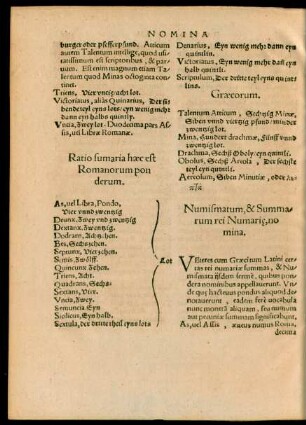 NOMINA
burger oder pfefferpfund. Atticum
autem Talentum intellige, quod usi-
tatissimum est scriptoribus, & par-
uum. Est enim magnum etiam Ta-
lentum quod Minas octoginta con-
tinet.
Triens, Vier vntz acht lot.
Victoriatus, aliàs Quinarius, Der si-
bende teyl eyns lots: eyn wenig mehr
dann eyn halbs quintlin.
Vncia, Zwey lot. Duodecima pars As-
sis, uti Libræ Romanæ.
Ratio sumaria hæc est
Romanorum pon
derum.
As, uel Libra, Pondo,
Vier vnnd zwentzig
Deunx, Zwey vnd zwentzig
Dextanx, Zwentzig.
Dodrans, Achtzehen.
Bes, Sechtzehen.
Septunx, Viertzehen.
Semis, Zwölff.
Quincunx Zehen.
Triens, Acht.
Quadrans, Sechs.
Sextans, Vier.
Vncia, Zwey.
Semuncia Eyn
Sicilicus, Eyn halb.
Sextula, Der dritte theil eyns lots
Lot
Denarius, Eyn wenig mehr dann eyn
quintlin.
Victoriatus, Eyn wenig mehr dañ eyn
halb quintli.
Scripulum, Der dritte teyl eyns quint
lins.
Græcorum.
Talentum Atticum, Sechtzig Minæ,
Siben vnd viertzig pfund minder
zwentzig lot.
Mina, Hundert drachmæ, Fünff vnd
zwentzig lot.
Drachma, Sechs Oboly: eyn quintli.
Obolus, Sechs Areola, Der sechste
teyl eyns quintli.
Aereolum, Siben Minutiæ, oder
Numismatum, & Summa-
rum rei Numariæ, no
mina.
VEteres cum Græcorum Latini cer-
tas rei numariæ summas, &
Numismata iisdem fermè, quibus pon-
dera nominibus appellauerunt. Vn-
de ubi hactenus pondus aliquod
denotauerunt, eædem ferè uocabula
nunc monetam aliquam, seu numum
aut pecuniæ summam significabunt.
As, uel Assis, æneus numus Roma,
decima